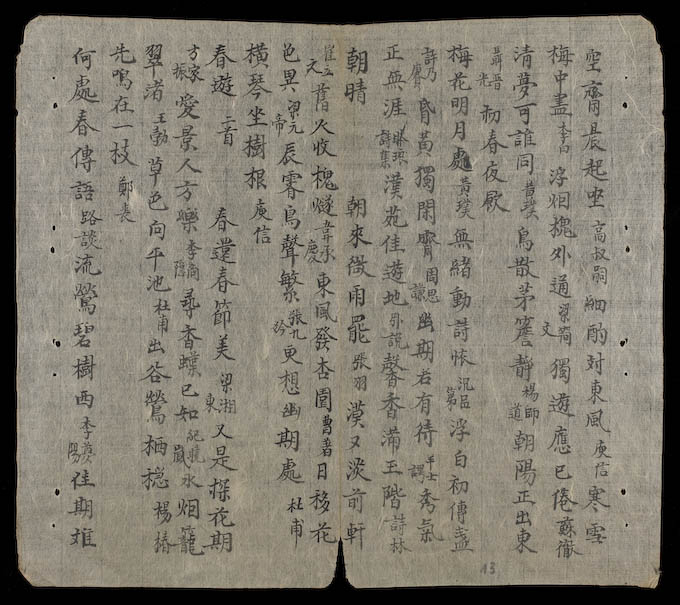 空齋晨起坐 高叔嗣 細酌対東風 庾信 寒雪
梅中盡 李白 浮烟槐外通 梁簡文 獨遊應已倦 蘇徹
清夢可誰同 黃璞 鳥散茅簷靜 楊師道 朝陽正出東
聶晋光 初春夜
梅花明月處 黃璞 無緒動詩懷 沉昌第 浮白初傳盞
許乃賡 昏黃獨閑齋 周思謙 幽期若有待 秀氣
正無涯 琳琅詩集 漢苑佳遊地 外說 馨香滿玉階 詩林
朝晴 朝來微雨罷 張羽 漠又淡前軒
崔立元 舊火收槐燧 韋承慶 東風發杏園 曹著 日移花
色異 梁元帝 辰霽鳥聲繁 張九齡 更想幽期處 杜甫
橫琴坐樹根 庾信
春遊 二首 春還春節美 梁湘東 又是探花期
方家振 愛景人方樂 李商隱 尋香蝶已知 紀曉嵐 水烟籠
翠渚 王勃 草色向平池 杜甫 出谷鶯栖穏 楊椿
先鳴在一枝 鄭袤
何處春傳語 路談 流鶯碧樹西 李夢陽 佳期難
13